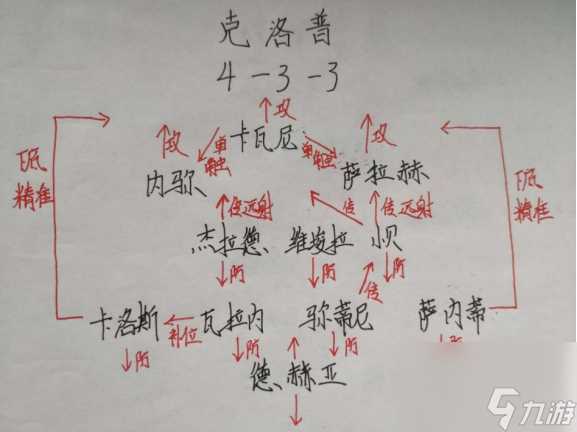 克洛普
4-3-3
攻
卡瓦尼
攻 单蚀 单蚀 攻
内弥 萨拉赫
下底 精准
下底 精准
传远射 传 传远射
杰拉德 维埃拉 小贝
防 防 防
传
卡洛斯 补位 瓦拉内 弥蒂尼 萨内蒂
防 防 防
德赫亚
九游